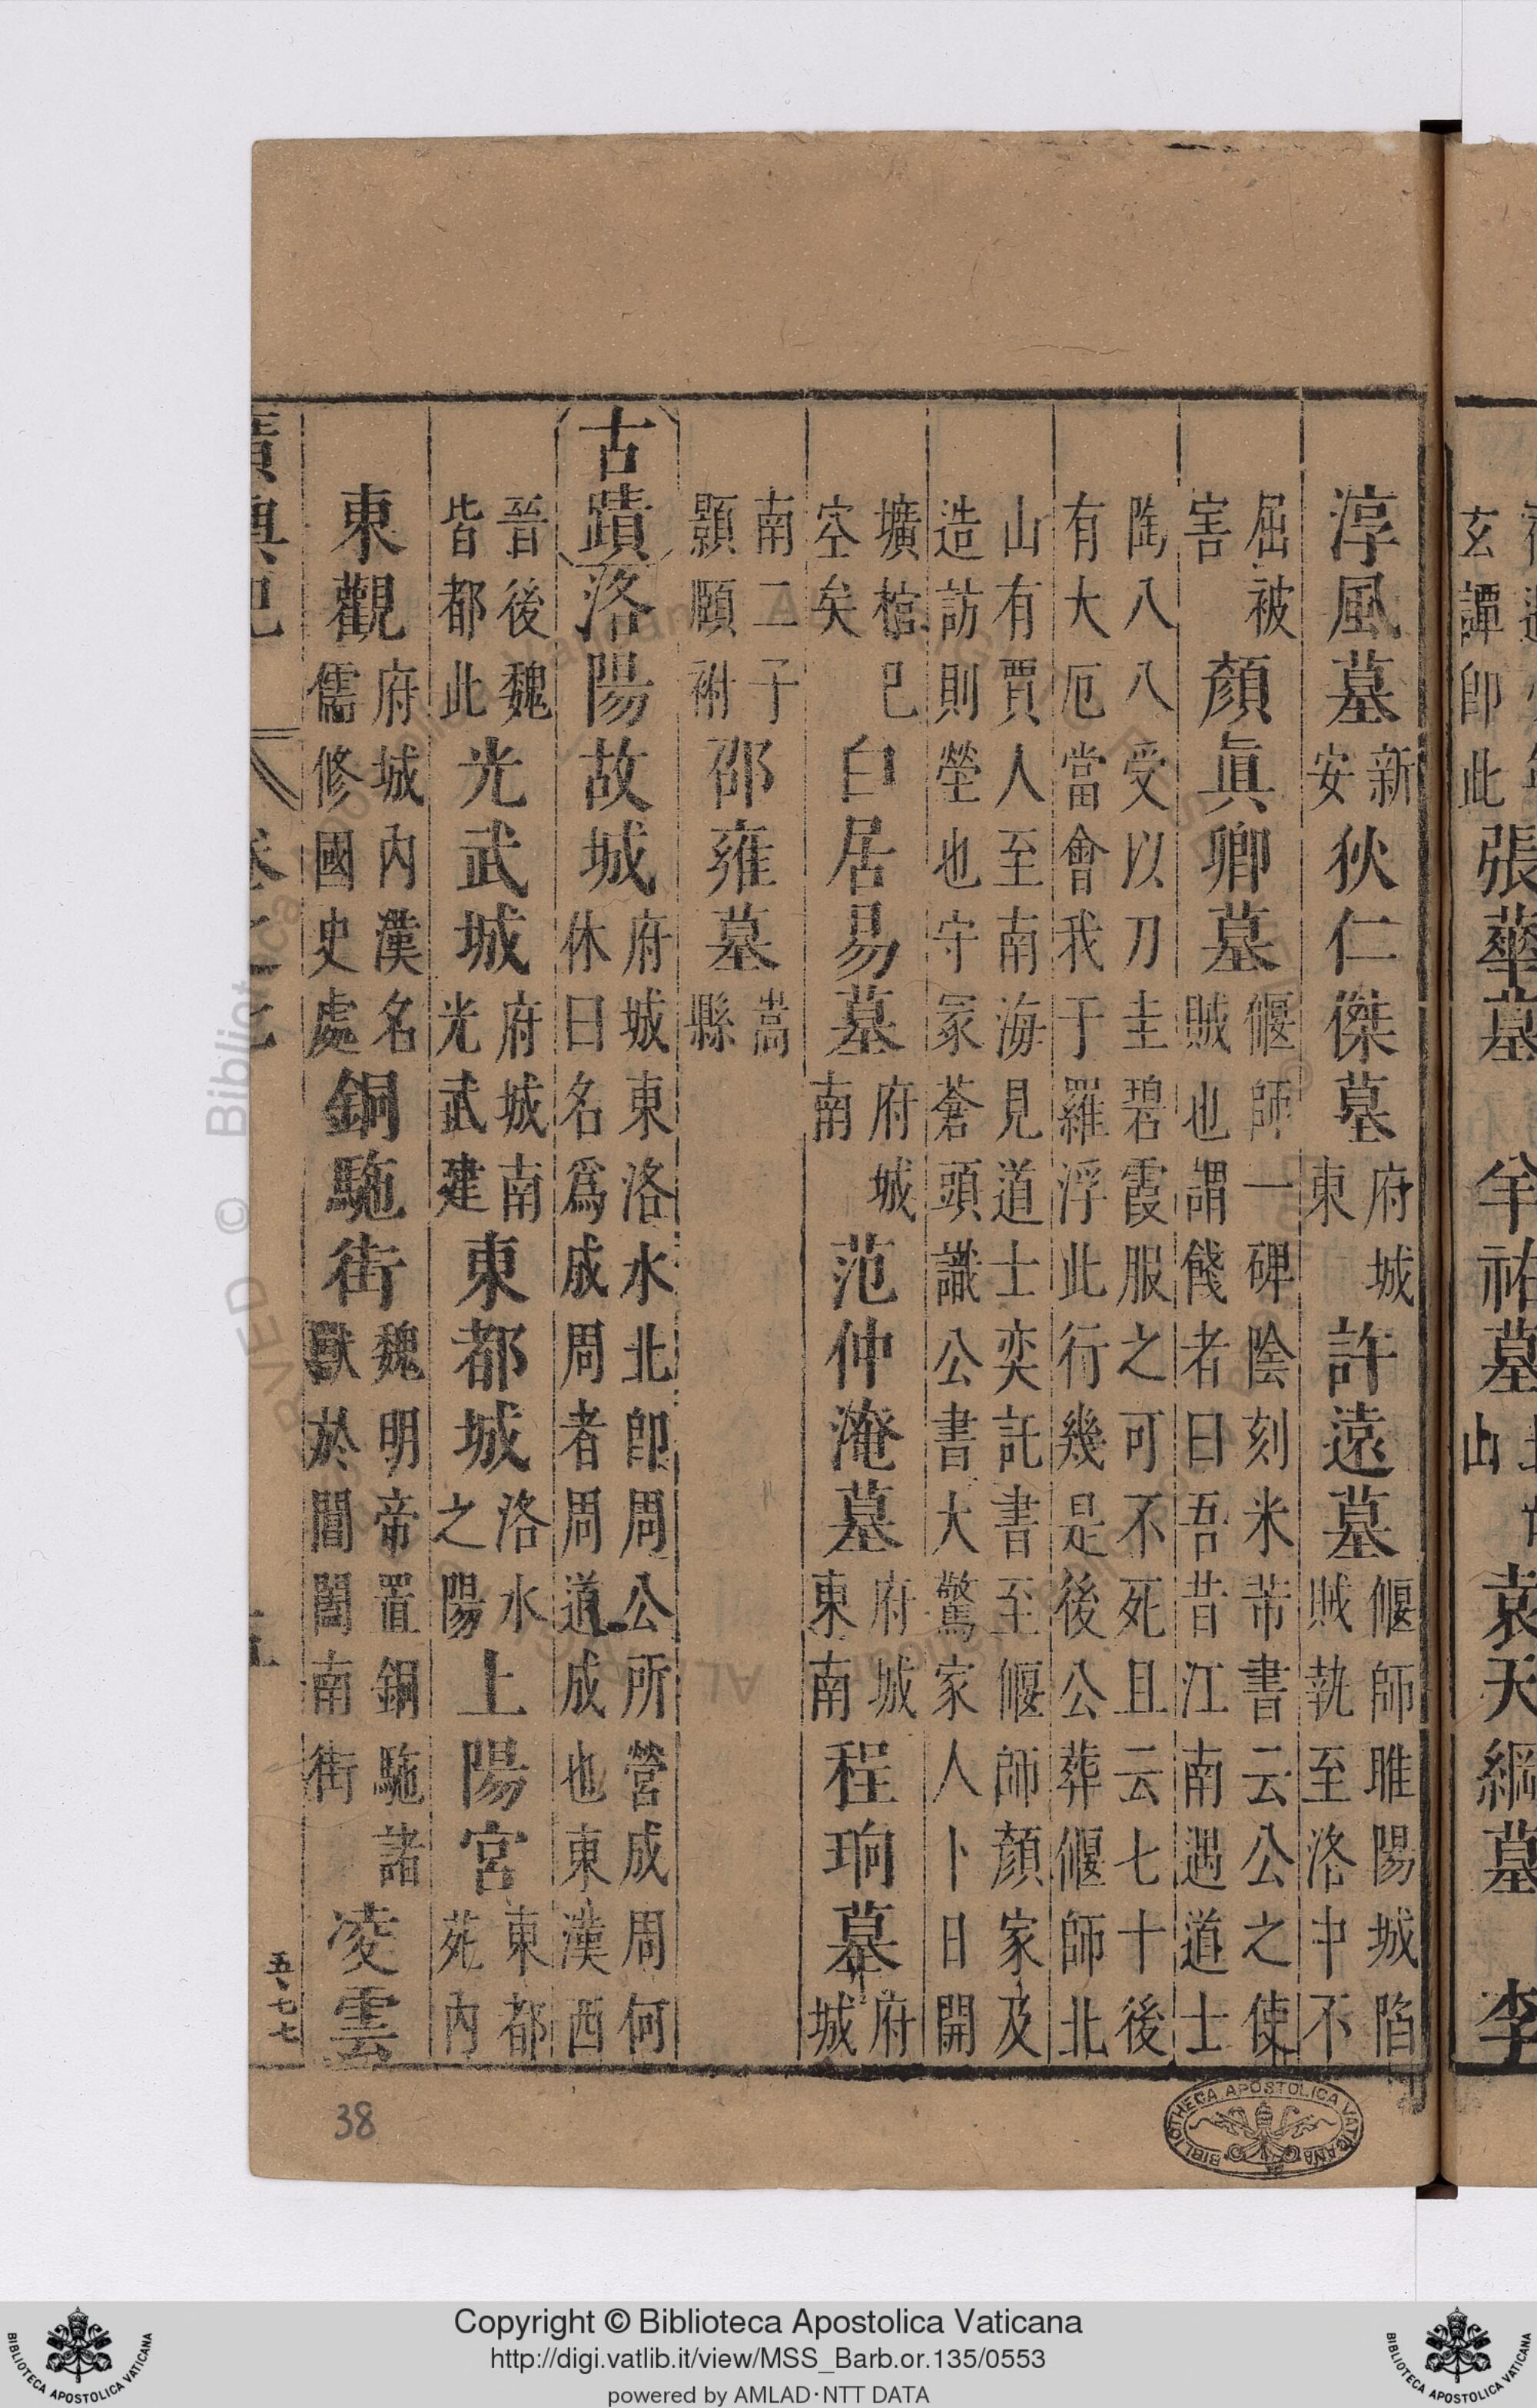 玄譚卽此張華墓羊祜墓山袁天綱墓李
淳風墓新安狄仁傑墓府城東許遠墓偃師睢陽城陷賊執至洛中不
屈被害顏眞卿墓偃師一碑陰刻米芾書云公之使賊也謂餞者曰吾昔江南遇道士
陶八八受以刀圭碧霞服之可不死且云七十後有大厄當會我于羅浮此行幾是後公葬偃師北
山有賈人至南海見道士奕託書至偃師顏家及造訪則塋也守冢蒼頭識公書大驚家人卜日開
壙棺已空矣白居易墓府城南范仲淹墓府城東南程珦墓府城
南二子顥頤祔邵雍墓嵩縣
古蹟洛陽故城府城東洛水北卽周公所營成周何休曰名爲成周者周道成也東漢西
晉後魏皆都此光武城府城南光武建東都城洛水之陽上陽宮東都苑內
東觀府城內漢名儒修國史處銅駞街魏明帝置銅駞諸獸於閶闔南街凌雲
五、七七
38
BIBLIOTHECA APOSTOLICA VATICANA
Copyright © Biblioteca Apostolica Vaticana
http://digi.vatlib.it/view/MSS_Barb.or.135/0553
powered by AMLAD·NTT DATA
BIBLIOTECA APOSTOLICA VATICANA
BIBLIOTECA APOSTOLICA VATICANA